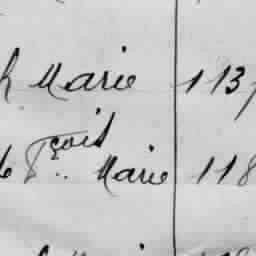 h Marie 113
Fçois Marie 118